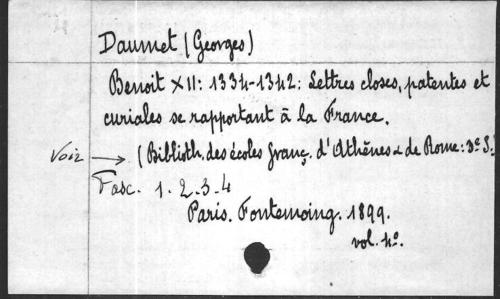 Daumet (Georges)
Benoit XII: 1334-1342: Lettres closes, patentes et
curiales se rapportant à la France.
Voir → (Biblioth. des écoles franç. d'Athènes & de Rome: 3e S.
Fasc. 1. 2. 3. 4
Paris. Fontemoing. 1899.
vol. 4o.